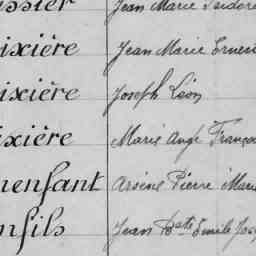 Jean Marie Isidore
ixière Jean Marie Ernes
ixière Joseph Léon
ixière Marie Ange Franço
nenfant Arsène Pierre Marie
nfils Jean Bte Emile Jos